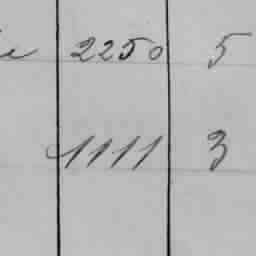 2250 5
1111 3